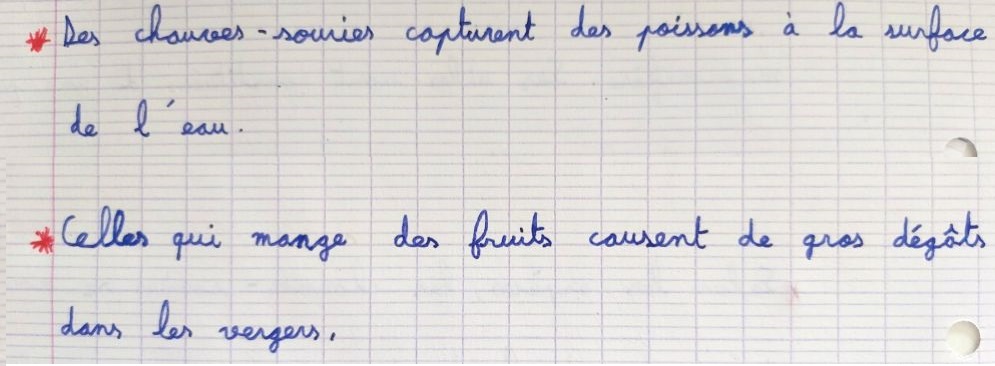 * Des chauves-souries capturent des poissons à la surface
de l'eau.
* Celles qui mange des fruits causent de gros dégâts
dans les vergers.